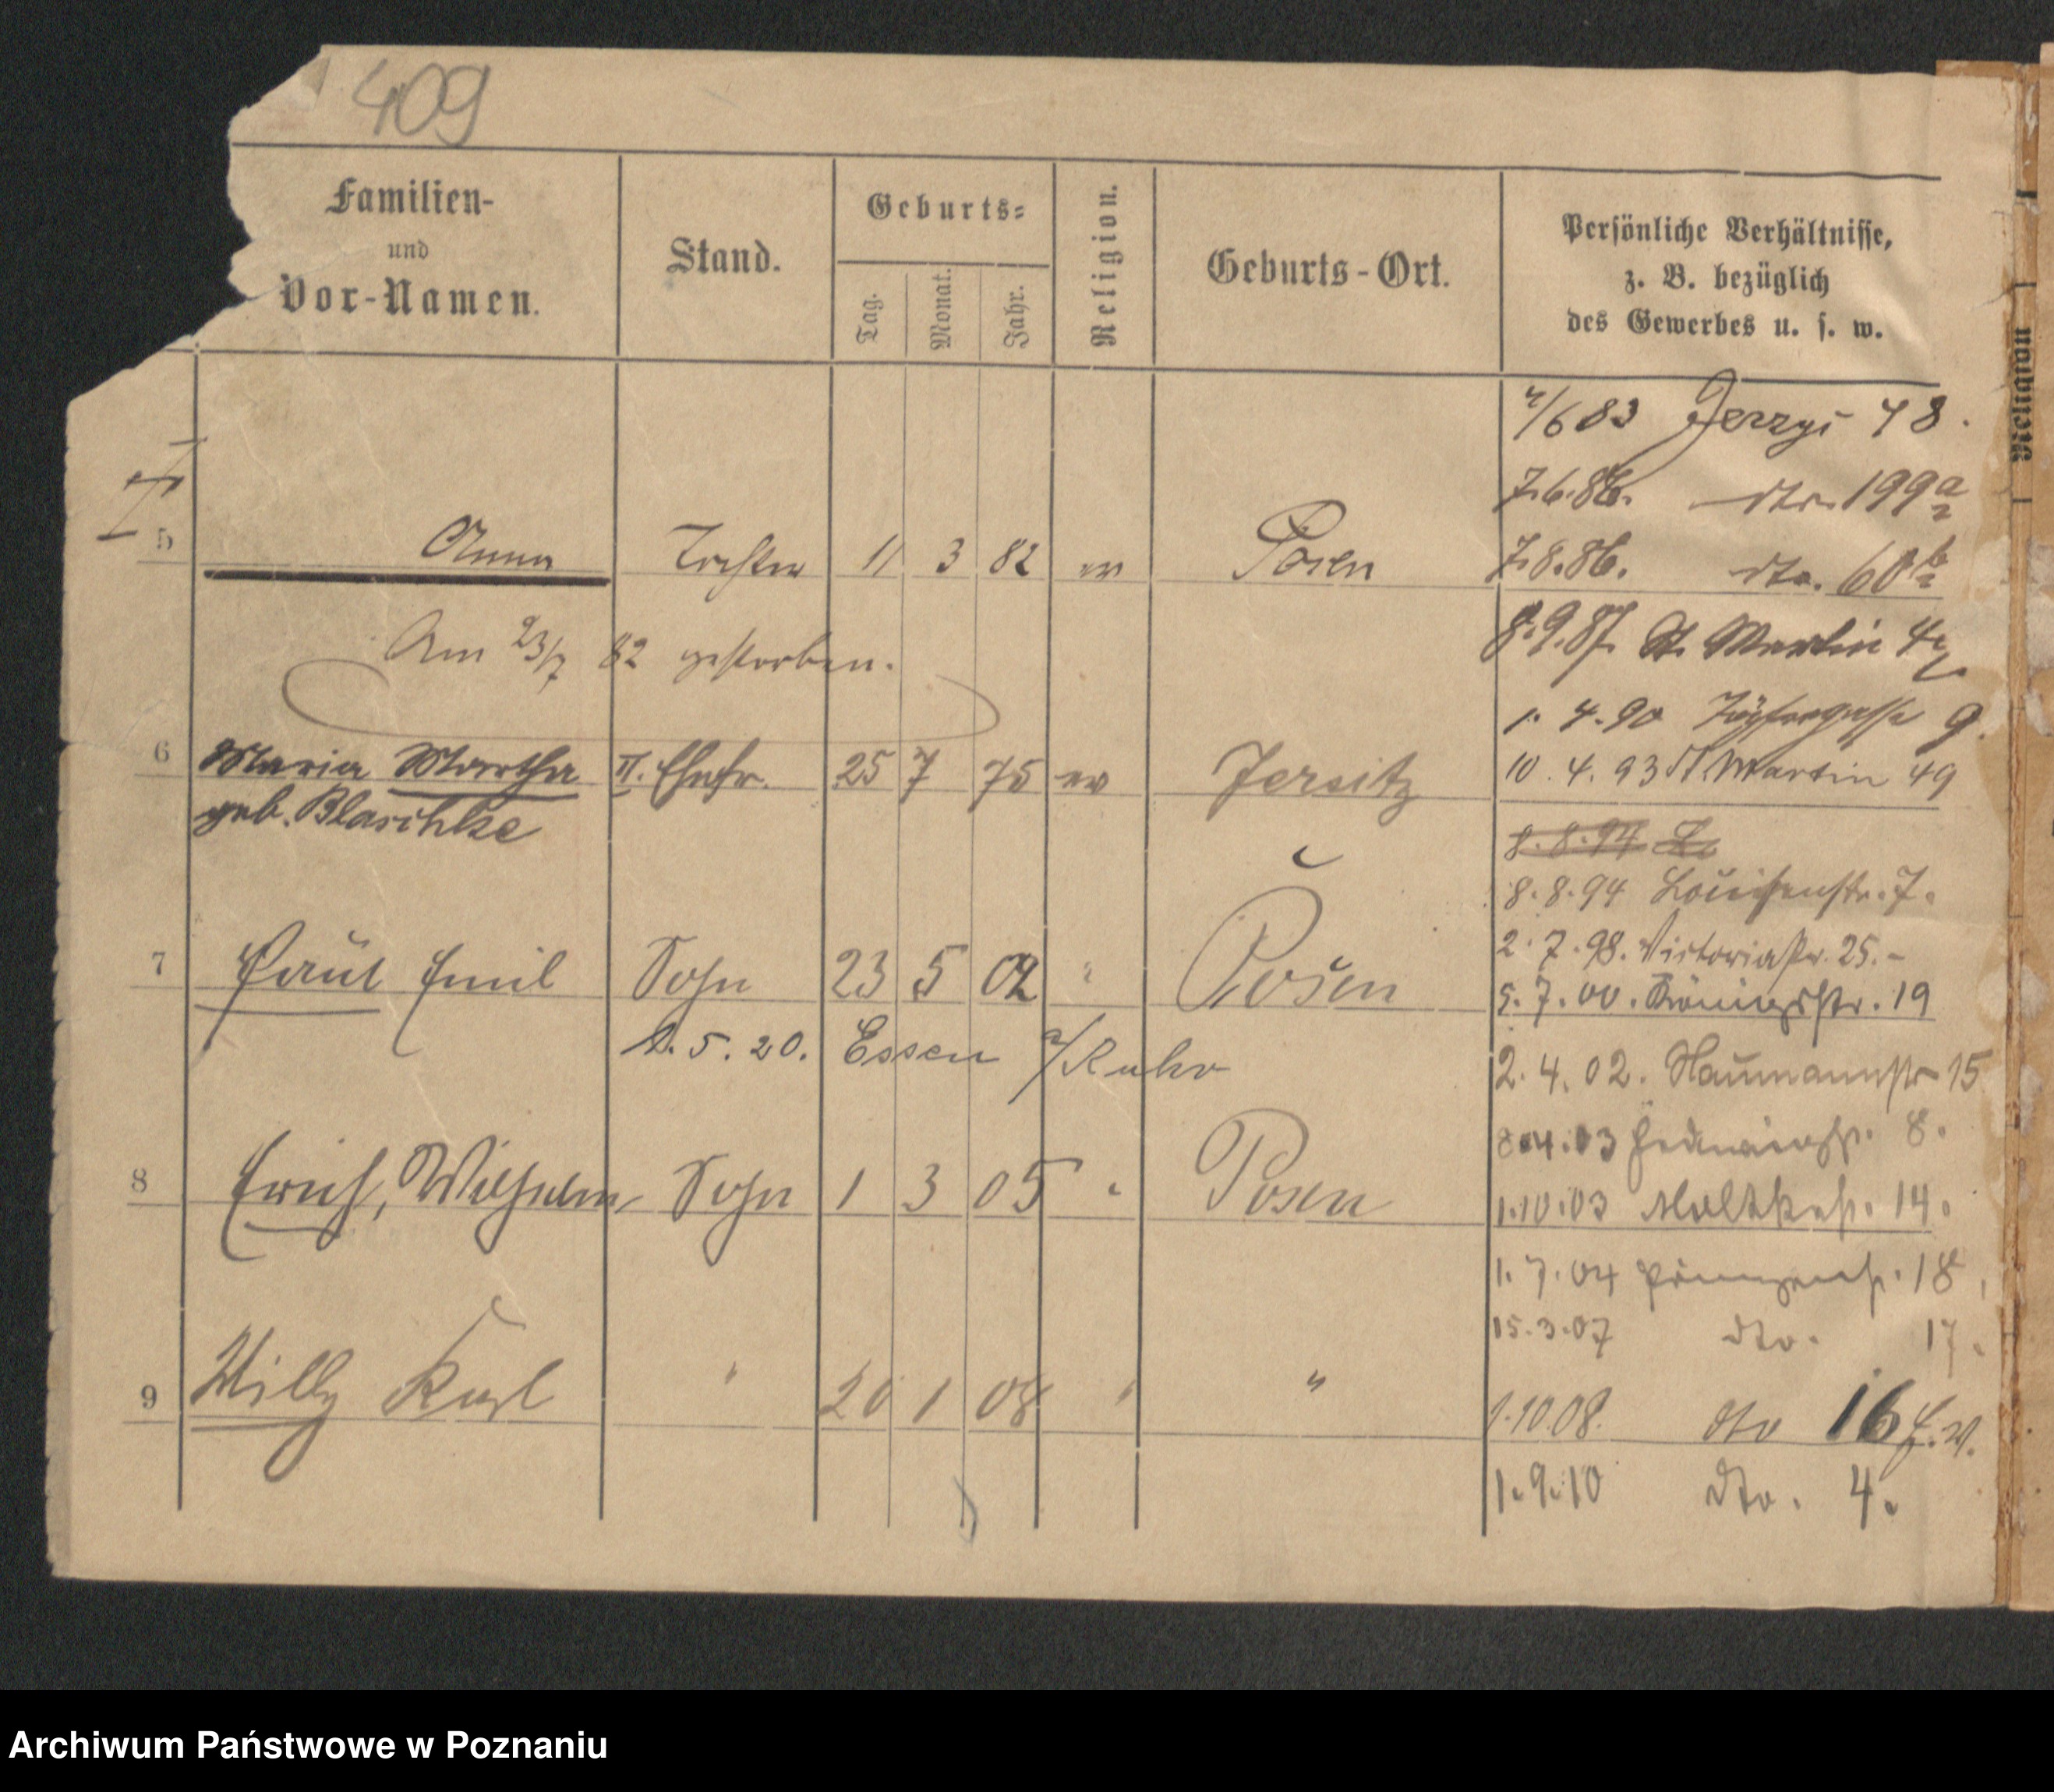 409
Familien-
und
Vor-Namen.
Stand.
Geburts-
Tag.
Monat.
Jahr.
Religion.
Geburts-Ort.
Persönliche Verhältnisse,
z. B. bezüglich
des Gewerbes u. s. w.
4/6 83 Jerzyi 48.
7.6.86. dto. 199a
5 Anna Tochter 11 3 82 ev Posen
7.8.86. dto. 60b
Am 23/7 82 gestorben.
8.9.87. St. Martin 4
1. 4. 90 Töpfergasse 9.
6 Maria Martha II. Ehefr. 25 7 75 ev Jersitz
geb. Blaschke
10. 4. 93 St Martin 49
8.8.94 L
8.8.94 Louisenstr. 7.
2. 7. 98. Victoriastr. 25.-
7 Paul Emil Sohn 23 5 02 " Posen
5. 7. 00. Königsstr. 19
5. 20. Essen a/Ruhr
2. 4. 02. Naumannstr 15
8.4.03 Hedwigstr. 8.
8 Erich, Wilhelm Sohn 1 3 05 " Posen
1.10.03 Moltkestr. 14.
1. 7. 04 Prinzenstr. 18
15.3.07 dto. 17.
9 Willy Karl " 20 1 08 " "
1.10.08. dto 16
1.9.10 dto. 4.
Religion
Archiwum Państwowe w Poznaniu